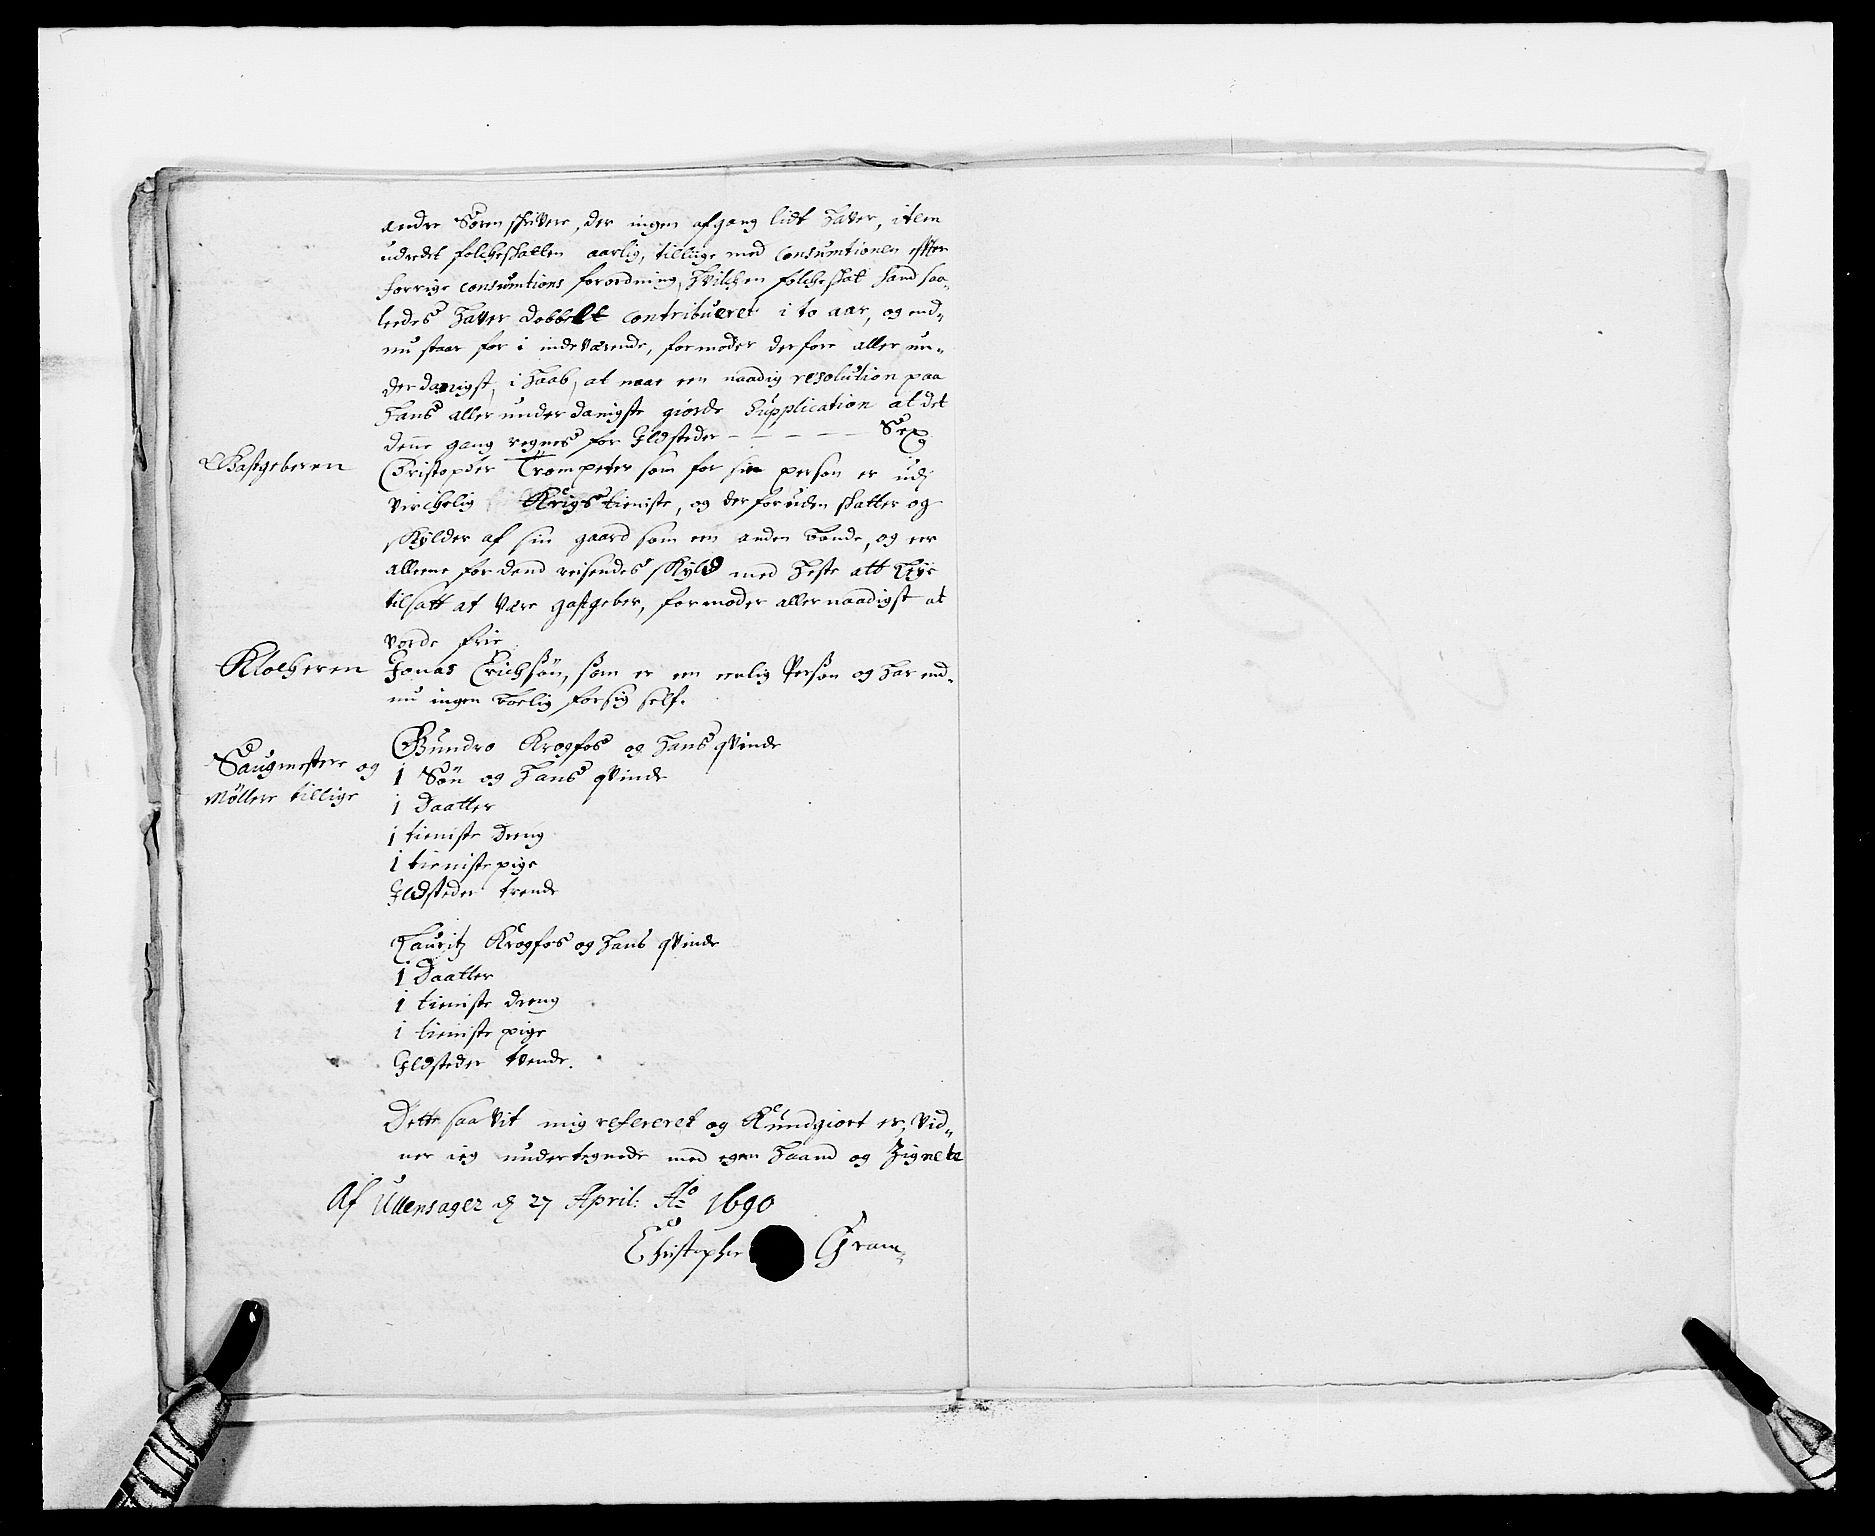 andre Sorenskrivere, der ingen afgang lidt hafver, item
udredet folcheskatten aarlig, tillige med Consumtionen effter
forrige Consumtions forordning, hvilchen folcheskat hand saa-
leedes hafver dobbelt Contribueret i to aar, og end-
nu staar for i indeværende, formoder derfore aller un-
derdanigst, i haab, at naae een naadig resolution paa
hans aller underdanigste giorde Supplication at det
denne gang regnes for Ildsteder - - - - - Sex
Gastgeberen Christopher Trompeter som for sin person er udj
virchelig Krigs tieniste, og der foruden skatter og
skylder af sin gaard som een anden bonde, og er
alleene for dend reisendes skyld med heste att
tilsatt at være gastgeber, formoder allernaadigst at
vorde frie.
Klocheren Jonas Erichsøn, som er een enlig Persøn og har end-
nu ingen boelig for sig self.
Saugmestere og Møllere tillige
Gundro Krogfos og hans qvinde
1 Søn og hans qvinde
1 Daatter
1 tieniste dreng
1 tieniste pige
Ildsteder trende
Lauritz Krogfos og hans qvinde
1 Daatter
1 tieniste dreng
1 tieniste pige
Ildsteder tvende.
Dette saa vit mig refereret og Kundgiort er, vid-
ner ieg undertegnede med egen haand og Zignete
Af Ullensager d 27 April: Ao 1690
Christopher Gram